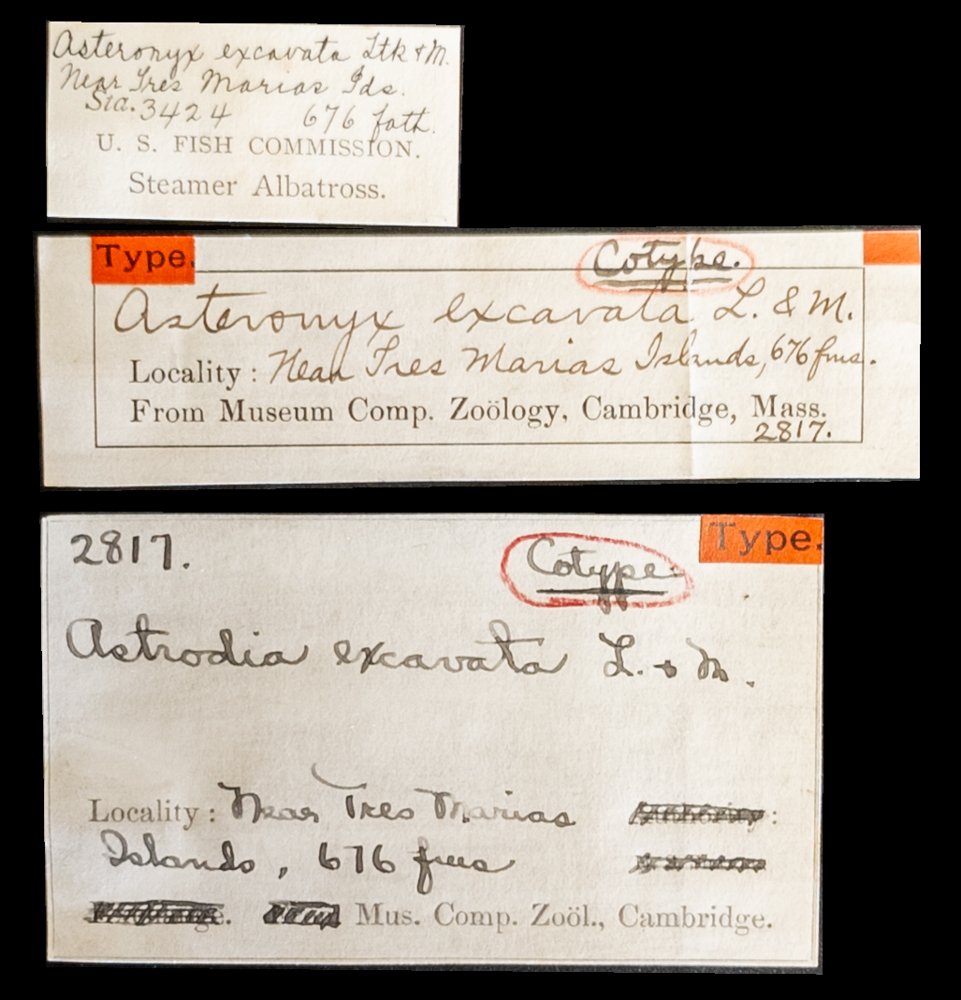 Asteronyx excavata Ltk & M.
Near Tres Marias Ids.
Sta. 3424 676 fath.
U. S. FISH COMMISSION.
Steamer Albatross.
Type. Cotype.
Asteronyx excavata L. & M.
Locality: Near Tres Marias Islands, 676 fms.
From Museum Comp. Zoölogy, Cambridge, Mass.
2817.
2817. Cotype. Type.
Astrodia excavata L. & M.
Locality: Near Tres Marias
Islands, 676 fms
Mus. Comp. Zoöl., Cambridge.